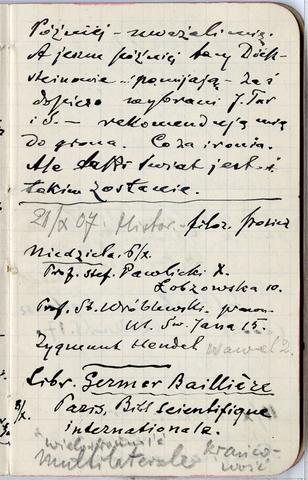 Później – uważali mię.
A jeszcze później tacy Dick-
steinowie .. pomijają – zaś
dopiero wybrani J. Tur
i S. – rekomendują mię
do grona. Co za ironia.
Ale taki świat jest i
takim zostanie.
21/X 07. Histor. – filoz. 
Niedziela. 6/X.
Prof. Stef. Pawlicki X.
Łobzowska 10.
Prof. St. Wróblewski. prawn.
Ul. Św. Jana 15.
Zygmunt Hendel Wawel 2.
Libr. Germer Baillière
8/X. Paris. Bibl Scientifique
internationale.
wielostronność
multilaterale
krańco-
wość